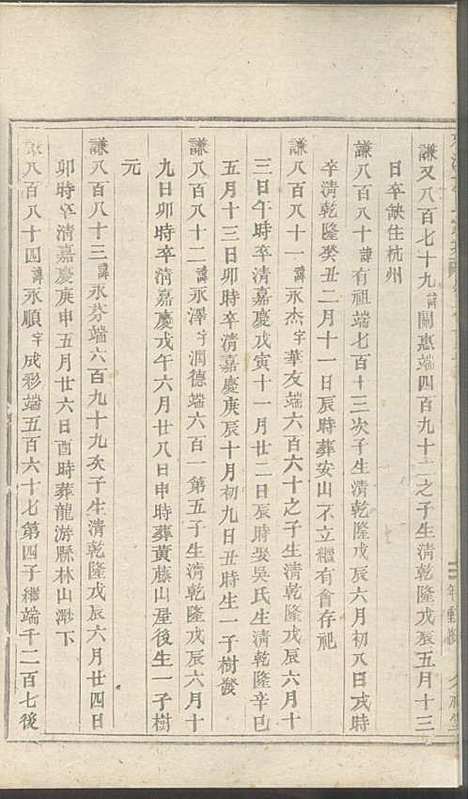 謙又八百七十九諱關惠端四百九十二之子生清乾隆戊辰五月十三
日卒缺住杭州
謙八百八十諱有祖端七百十三次子生清乾隆戊辰六月初八日戌時
卒清乾隆癸丑二月十一日辰時葬安山不立繼有會存祀
謙八百八十一諱永杰字華友端六百六十之子生清乾隆戊辰六月十
三日午時卒清嘉慶戊寅十一月廿二日辰時娶吳氏生清乾隆辛巳
五月十三日卯時卒清嘉慶庚辰十月初九日丑時生一子樹發
謙八百八十二諱永澤字潤德端六百一第五子生清乾隆戊辰六月十
九日卯時卒清嘉慶戊午六月廿八日申時葬黃藤山屋後生一子樹
元
謙八百八十三諱永芬端六百九十九次子生清乾隆戊辰六月廿四日
卯時卒清嘉慶庚申五月廿六日酉時葬龍游縣林山下
謙八百八十四諱永順字成彩端五百六十七第四子繼端千二百七後